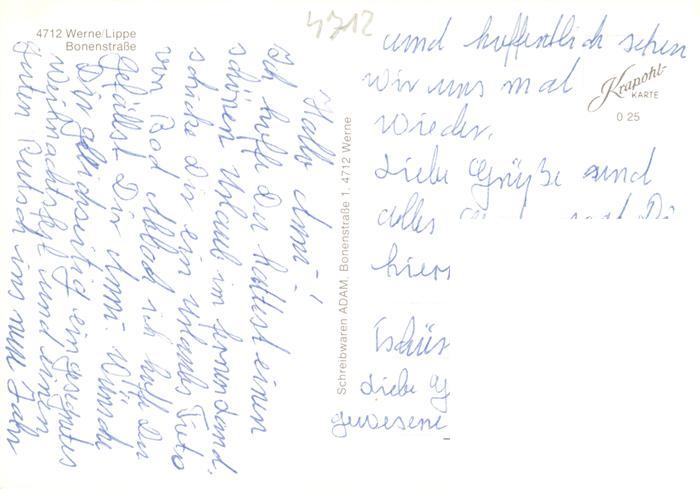 4712 Werne/Lippe
Bonenstraße
4712
Hallo Anni!
Ich hoffe Du hattest einen
schönen Urlaub im
schicke Dir ein Urlaubs Foto
von Bad ich hoffe Du
gefällst Dir Anni. Wünsche
Dir gleichzeitig ein gesegnetes
Weihnachtsfest und einen
guten Rutsch ins neue Jahr
Schreibwaren ADAM, Bonenstraße 1, 4712 Werne
und hoffentlich sehen
wir uns mal
wieder.
Liebe Grüße und
alles
Tschüs
Liebe
gewesene
Krapohl-
KARTE
0 25